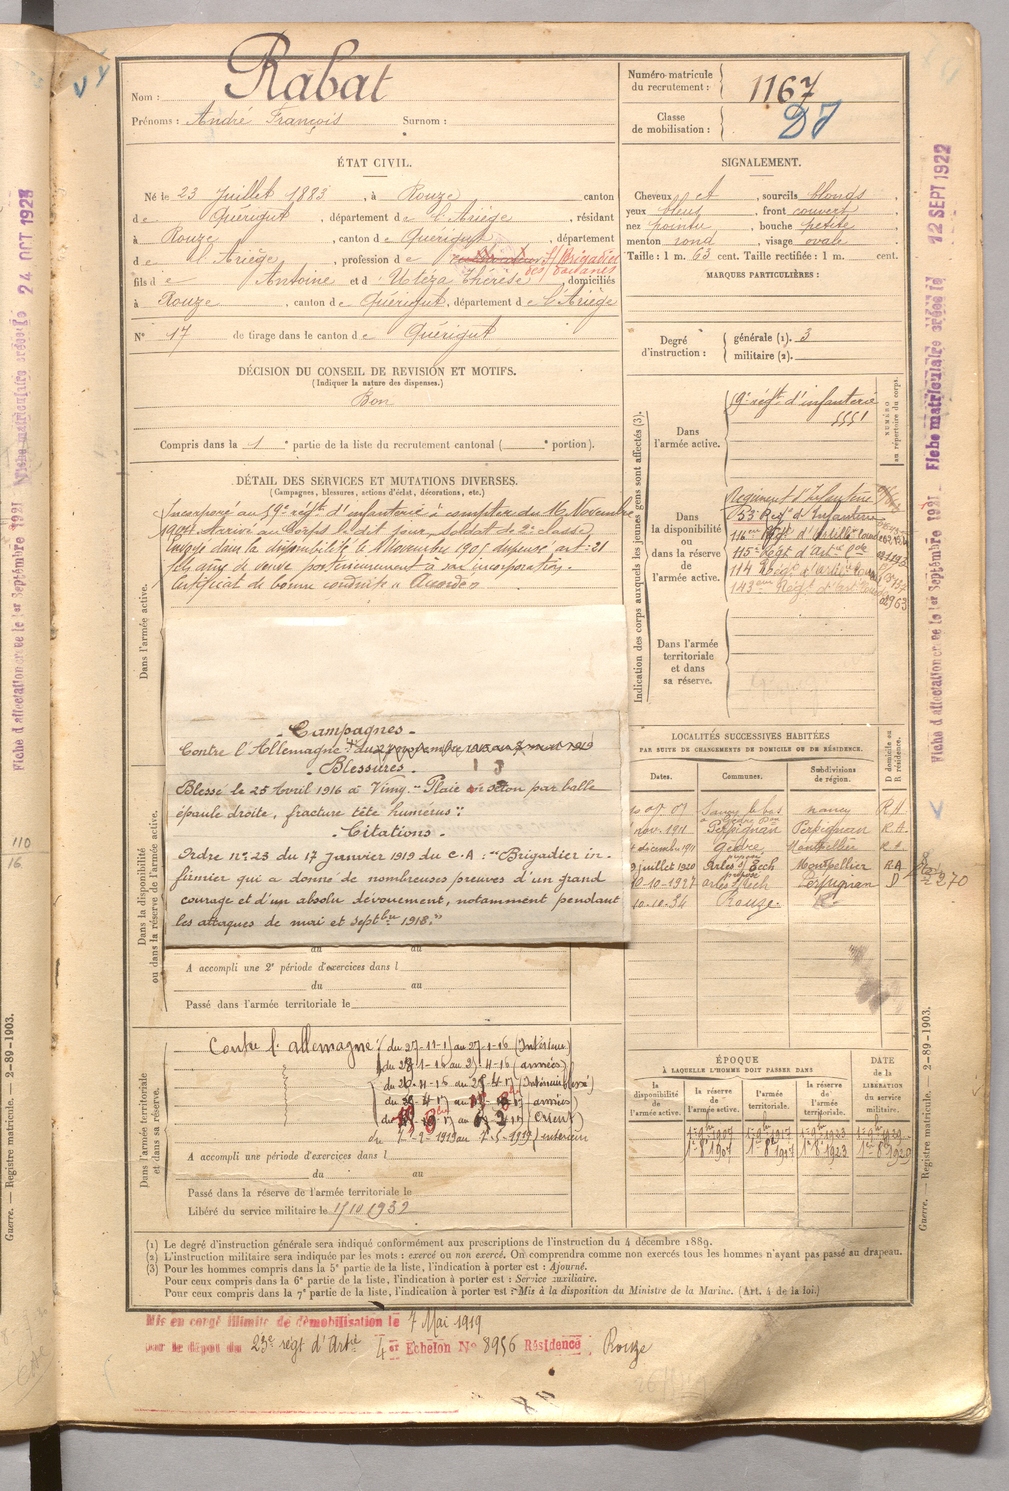 Nom : Rabat
Prénoms : André François Surnom :
Numéro matricule du recrutement : 1167
Classe de mobilisation :
ÉTAT CIVIL.
Né le 23 Juillet 1883, à Rouze canton
de Quérigut, département de l'Ariège, résidant
à Rouze, canton de Quérigut, département
de l'Ariège, profession de S/Brigadier
des Douanes
fils de Antoine et d Utéza Thérèse, domiciliés
à Rouze, canton de Quérigut, département de l'Ariège
N° 17 de tirage dans le canton de Quérigut
SIGNALEMENT.
Cheveux et, sourcils blonds
yeux bleus, front couvert
nez pointu, bouche petite
menton rond, visage ovale
Taille : 1 m. 63 cent. Taille rectifiée : 1 m. cent.
MARQUES PARTICULIÈRES :
Degré d'instruction : générale (1). 3
militaire (2).
DÉCISION DU CONSEIL DE REVISION ET MOTIFS.
(Indiquer la nature des dispenses.)
Bon
Compris dans la 1e partie de la liste du recrutement cantonal ( e portion).
DÉTAIL DES SERVICES ET MUTATIONS DIVERSES.
(Campagnes, blessures, actions d'éclat, décorations, etc.)
Dans l'armée active.
Incorporé au 59e régt d'infanterie à compter du 16 Novembre
1904. Arrivé au Corps le dit jour, soldat de 2e classe
Envoyé dans la disponibilité le
postérieurement à son incorporation.
Certificat de bonne conduite "Accordé"
Campagnes
Contre l'Allemagne : du
Blessures
Blessé le 25 Avril 1916 à Vimy. "Plaie en séton par balle
épaule droite, fracture tête humérus".
Citations
Ordre n° 23 du 17 Janvier 1919 du C.A : "Brigadier in-
firmier qui a donné de nombreuses preuves d'un grand
courage et d'un absolu dévouement, notamment pendant
les attaques de mai et septbre 1918."
Dans la disponibilité ou dans la réserve de l'armée active.
du au
A accompli une 2e période d'exercices dans l
du au
Passé dans l'armée territoriale le
Dans l'armée territoriale et dans sa réserve.
Contre l'allemagne du 27-11-15 au 27-1-16 (Intérieur)
(armées)
du 7-2-1919 au 7-5-1919 intérieur
A accompli une période d'exercices dans l
du au
Passé dans la réserve de l'armée territoriale le
Libéré du service militaire le 1/10 1932
Indication des corps auxquels les jeunes gens sont affectés (3).
NUMÉRO au répertoire du corps.
Dans l'armée active.
59e régt d'infanterie
5551
Dans la disponibilité ou dans la réserve de l'armée active.
Régiment d'Infanterie
53e Régt d'Infanterie
116e Régt d'Artillie Lourde
115e Régt d'Artie Lde
114 Régt d'artie
143eme Régt d'Art
Dans l'armée territoriale et dans sa réserve.
LOCALITÉS SUCCESSIVES HABITÉES
PAR SUITE DE CHANGEMENTS DE DOMICILE OU DE RÉSIDENCE.
Dates. Communes. Subdivisions de région. D domicile ou R résidence.
Nancy R A
nov. 1911 Perpignan Perpignan R. A.
décemb. 1911 Montpellier
juillet 1920 Arles s/ Tech Montpellier R A
10-10-1927 arles s/ tech Perpignan D
10.10.34 Rouze
ÉPOQUE
À LAQUELLE L'HOMME DOIT PASSER DANS
la disponibilité de l'armée active. la réserve de l'armée active. l'armée territoriale. la réserve de l'armée territoriale.
DATE de la LIBÉRATION du service militaire.
1er 8bre 1907 1er 8bre 1917 1er 8bre 1923 1er 8bre 1929
(1) Le degré d'instruction générale sera indiqué conformément aux prescriptions de l'instruction du 4 décembre 1889.
(2) L'instruction militaire sera indiquée par les mots : exercé ou non exercé. On comprendra comme non exercés tous les hommes n'ayant pas passé au drapeau.
(3) Pour les hommes compris dans la 5e partie de la liste, l'indication à porter est : Ajourné.
Pour ceux compris dans la 6e partie de la liste, l'indication à porter est : Service auxiliaire.
Pour ceux compris dans la 7e partie de la liste, l'indication à porter est : Mis à la disposition du Ministre de la Marine. (Art. 4 de la loi.)
Mis en congé illimité de démobilisation le 7 Mai 1919
par le dépôt du 23e régt d'Artie 4er Echelon No 8956 Résidence Rouze
Guerre. — Registre matricule. — 2-89-1903.
Guerre. — Registre matricule. — 2-89-1903.
Fiche d'affectation créée le 1er Septembre 1921
Fiche matriculaire créée le 24 OCT 1923
Fiche d'affectation créée le 1er Septembre 1921
Fiche matriculaire créée le 12 SEPT 1922
110
16